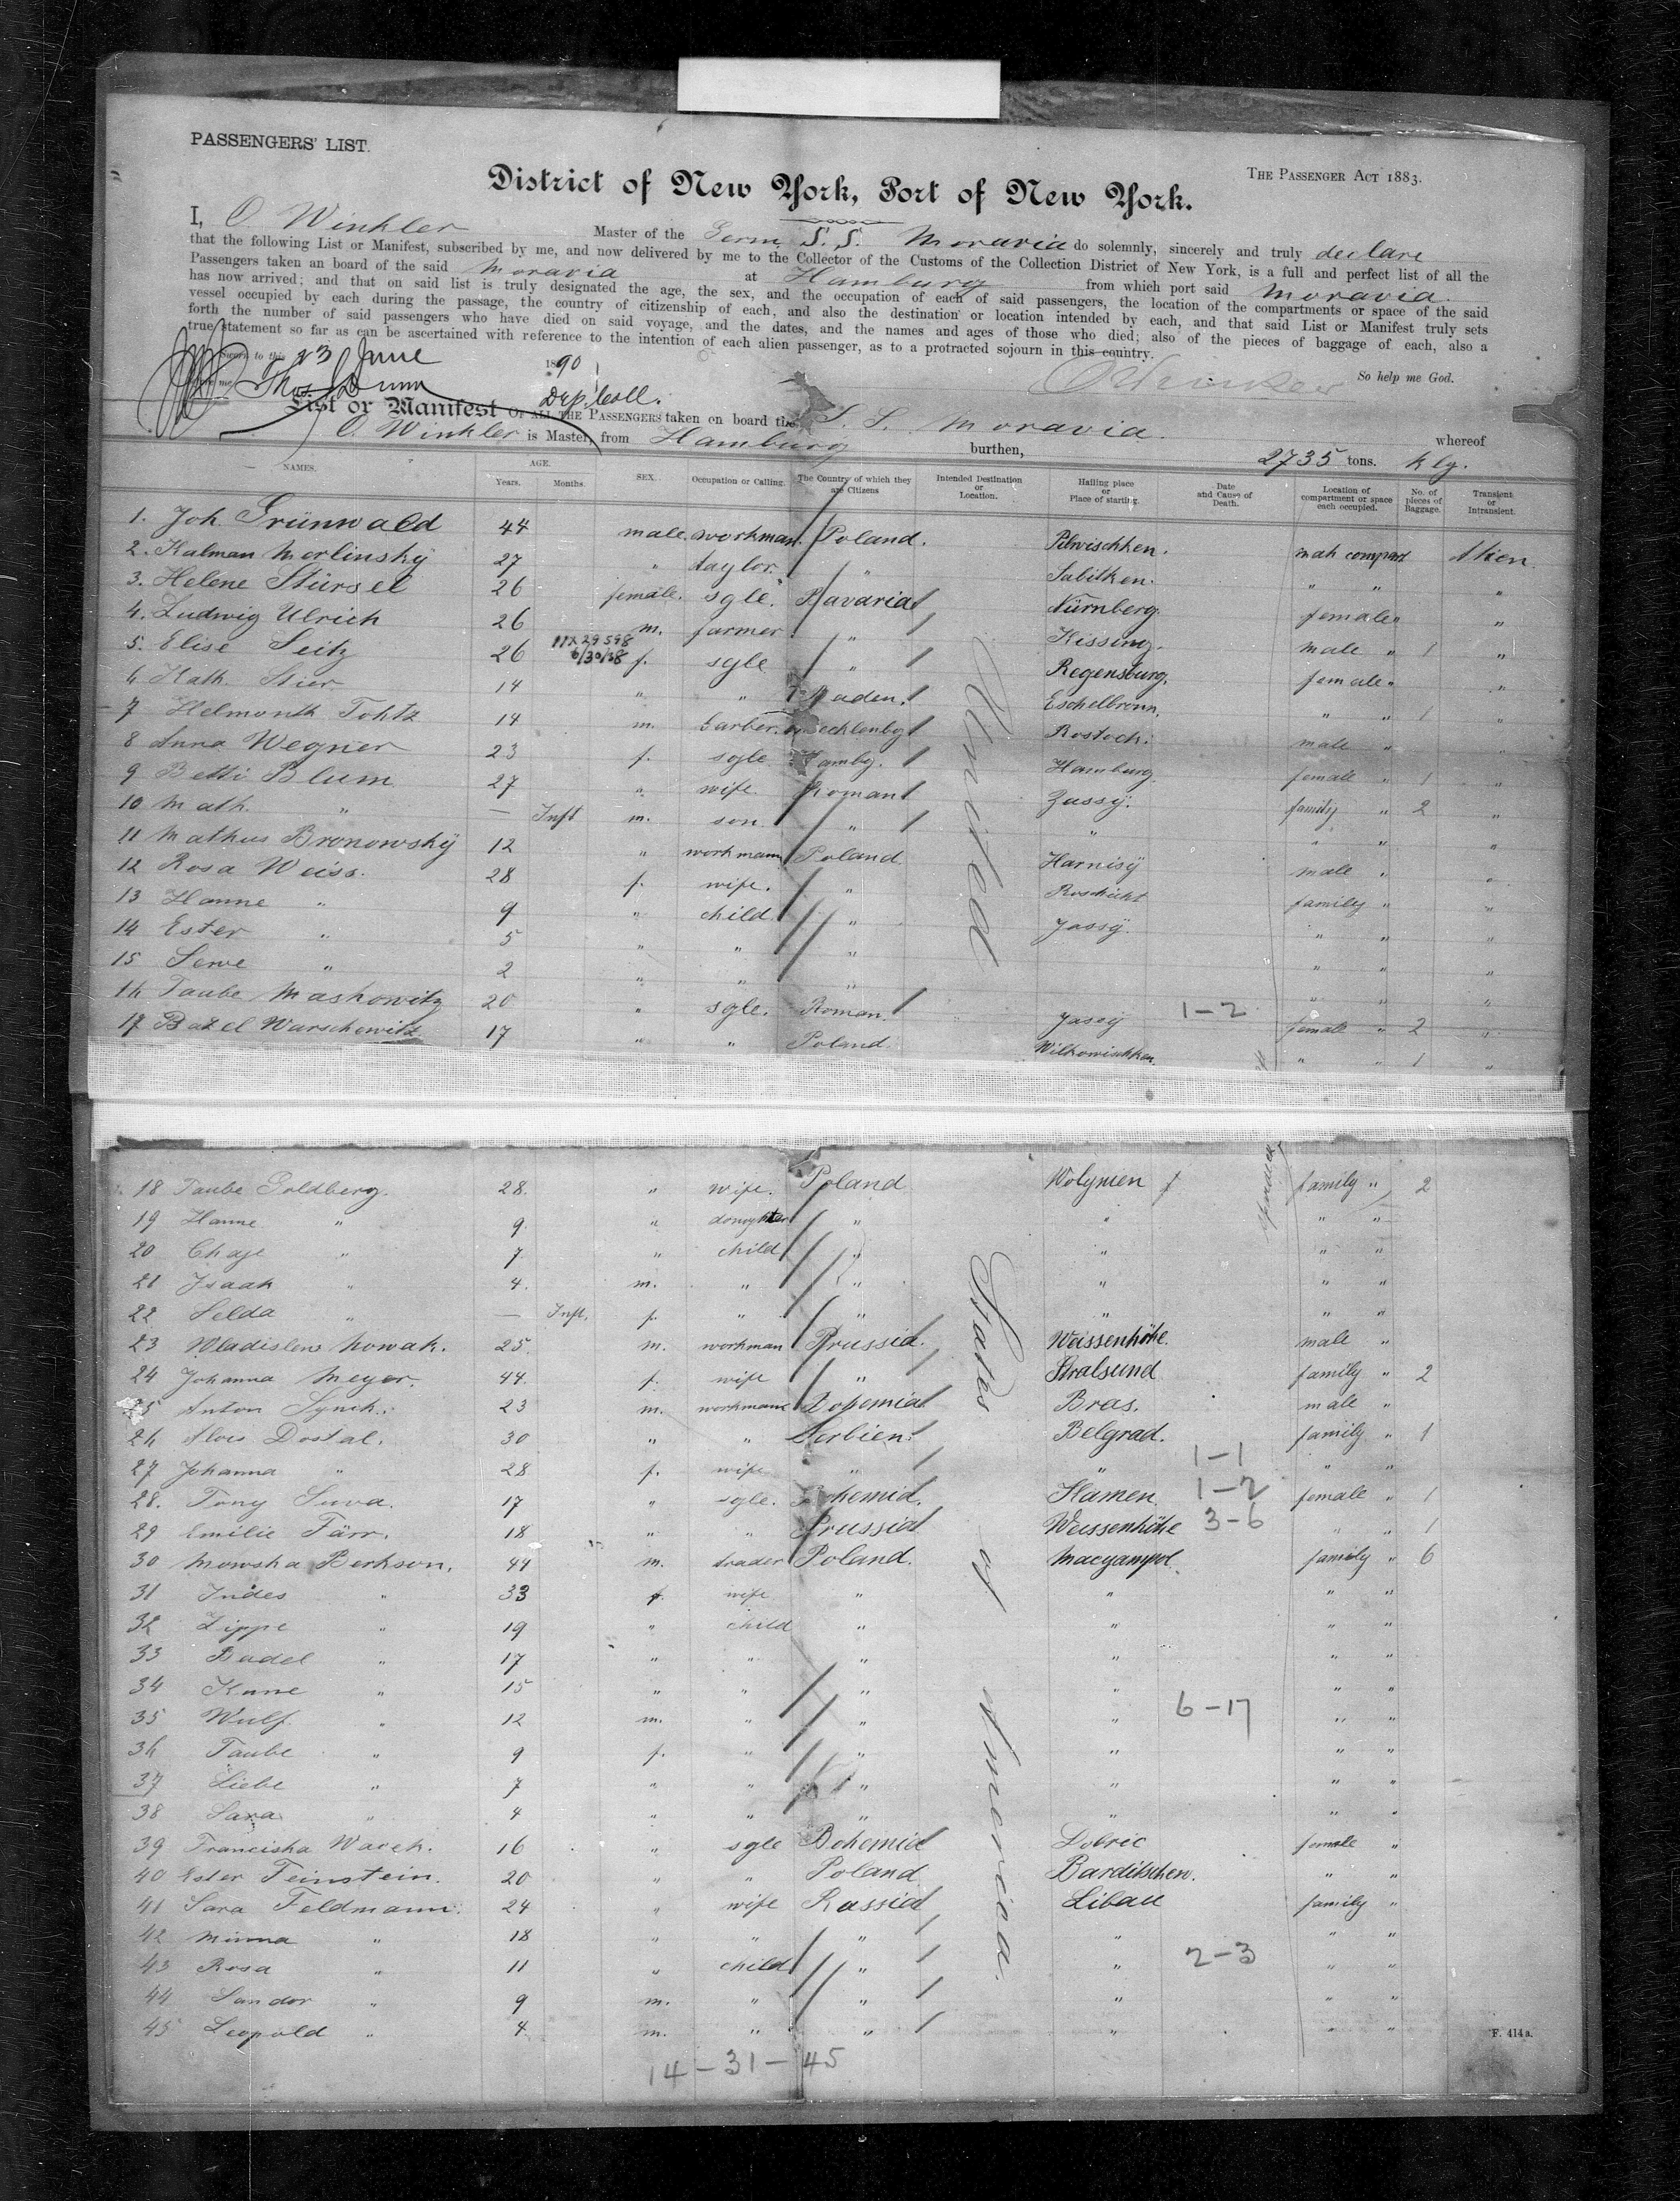 PASSENGERS' LIST.
THE PASSENGER ACT 1883.
District of New York, Port of New York.
I, O. Winkler Master of the Germ. S. S. Moravia do solemnly, sincerely and truly declare
that the following List or Manifest, subscribed by me, and now delivered by me to the Collector of the Customs of the Collection District of New York, is a full and perfect list of all the
Passengers taken an board of the said Moravia at Hamburg from which port said Moravia
has now arrived; and that on said list is truly designated the age, the sex, and the occupation of each of said passengers, the location of the compartments or space of the said
vessel occupied by each during the passage, the country of citizenship of each, and also the destination or location intended by each, and that said List or Manifest truly sets
forth the number of said passengers who have died on said voyage, and the dates, and the names and ages of those who died; also of the pieces of baggage of each, also a
true statement so far as can be ascertained with reference to the intention of each alien passenger, as to a protracted sojourn in this country.
Sworn to this 23 June 1890
So help me God.
Thos. Dunn
Dep. Coll.
List or Manifest OF ALL THE PASSENGERS taken on board the S. S. Moravia whereof
O. Winkler is Master, from Hamburg burthen, 2735 tons.
NAMES. AGE. Years. Months. SEX. Occupation or Calling. The Country of which they are Citizens Intended Destination or Location. Hailing place or Place of starting. Date and Cause of Death. Location of compartment or space each occupied. No. of pieces of Baggage. Transient or Intransient.
1. Joh. Grünwald 44 male workman Poland. Pilwischken. male compart
2. Kalman Morlinsky 27 " taylor. " Sabitken. " " "
3. Helene Stürsel 26 female. sgle. Bavaria Nürnberg. female " "
4. Ludwig Ulrich 26 m. farmer " Kissing. male " 1 "
5. Elise Seitz 26 11X29598 6/30/38 f. sgle " Regensburg. female " "
6 Kath. Stier 14 " " Baden. Eschelbronn. " " 1 "
7 Helmonth Tohtz 14 m. barber. Mecklenbg Rostock. male " "
8 Anna Wegner 23 f. sgle Hambg. Hamburg. female " 1 "
9 Betti Blum 27 " wife. Roman Jassy. family " 2 "
10 Math. " — Inft m. son " " " " "
11 Mathus Bronowsky 12 " workmann Poland Harnisy male " "
12 Rosa Weiss. 28 f. wife. " Roschicht family " "
13 Hanne " 9 " child " Jassy. " " "
14 Ester " 5 " " " " " "
15 Serve " 2 " " " " " "
16 Taube Maskowitz 20 " sgle. Roman. Jassy 1-2 female " 2 "
17 Bazel Warschewitz 17 " " Poland. Wilkowischken. " " 1 "
18 Taube Goldberg. 28. " wife. Poland Wolynien family " 2
19 Hanne " 9. " doughter " " " "
20 Chaje " 7 " child " " " "
21 Isaak " 4. m. " " " " "
22 Selda " — Inft. f. " " " " "
23 Wladislens Nowak. 25. m. workman Prussia. Weissenhöhe. male "
24 Johanna Meyer. 44. f. wife " Stralsund family " 2
25 Anton Synek. 23 m. workmann Bohemia Bras. male "
26 Alois Dostal. 30 " " Serbien Belgrad. family " 1
27 Johanna " 28 f. wife " " 1-1 " "
28. Tony Suva. 17 " sgle. Bohemia. Slamen 1-2 female " 1
29 Emilie Färr. 18 " " Prussia Weissenhöhe 3-6 " " 1
30 Mowsha Berkson. 44 m. trader Poland. Macyampol family " 6
31 Indes " 33 f. wife " " " "
32 Zippe " 19 " child " " " "
33 Badel " 17 " " " " " "
34 Kune " 15 " " " " " "
35 Wulf " 12 m. " " " 6-17 " "
36 Taube " 9 f. " " " " "
37 Liebe " 7 " " " " " "
38 Sara " 4 " " " " " "
39 Franciska Wacek. 16 " sgle Bohemia Dobric female "
40 Ester Feinstein. 20 " " Poland Barditschew. " "
41 Sara Feldmann. 24 " wife Russia Libau family "
42 Minna " 18 " " " " " "
43 Rosa " 11 " child " " 2-3 " "
44 Sandor " 9 m. " " " " "
45 Leopold " 4 m. " " " " "
United States of America.
F. 414a.
14-31-45